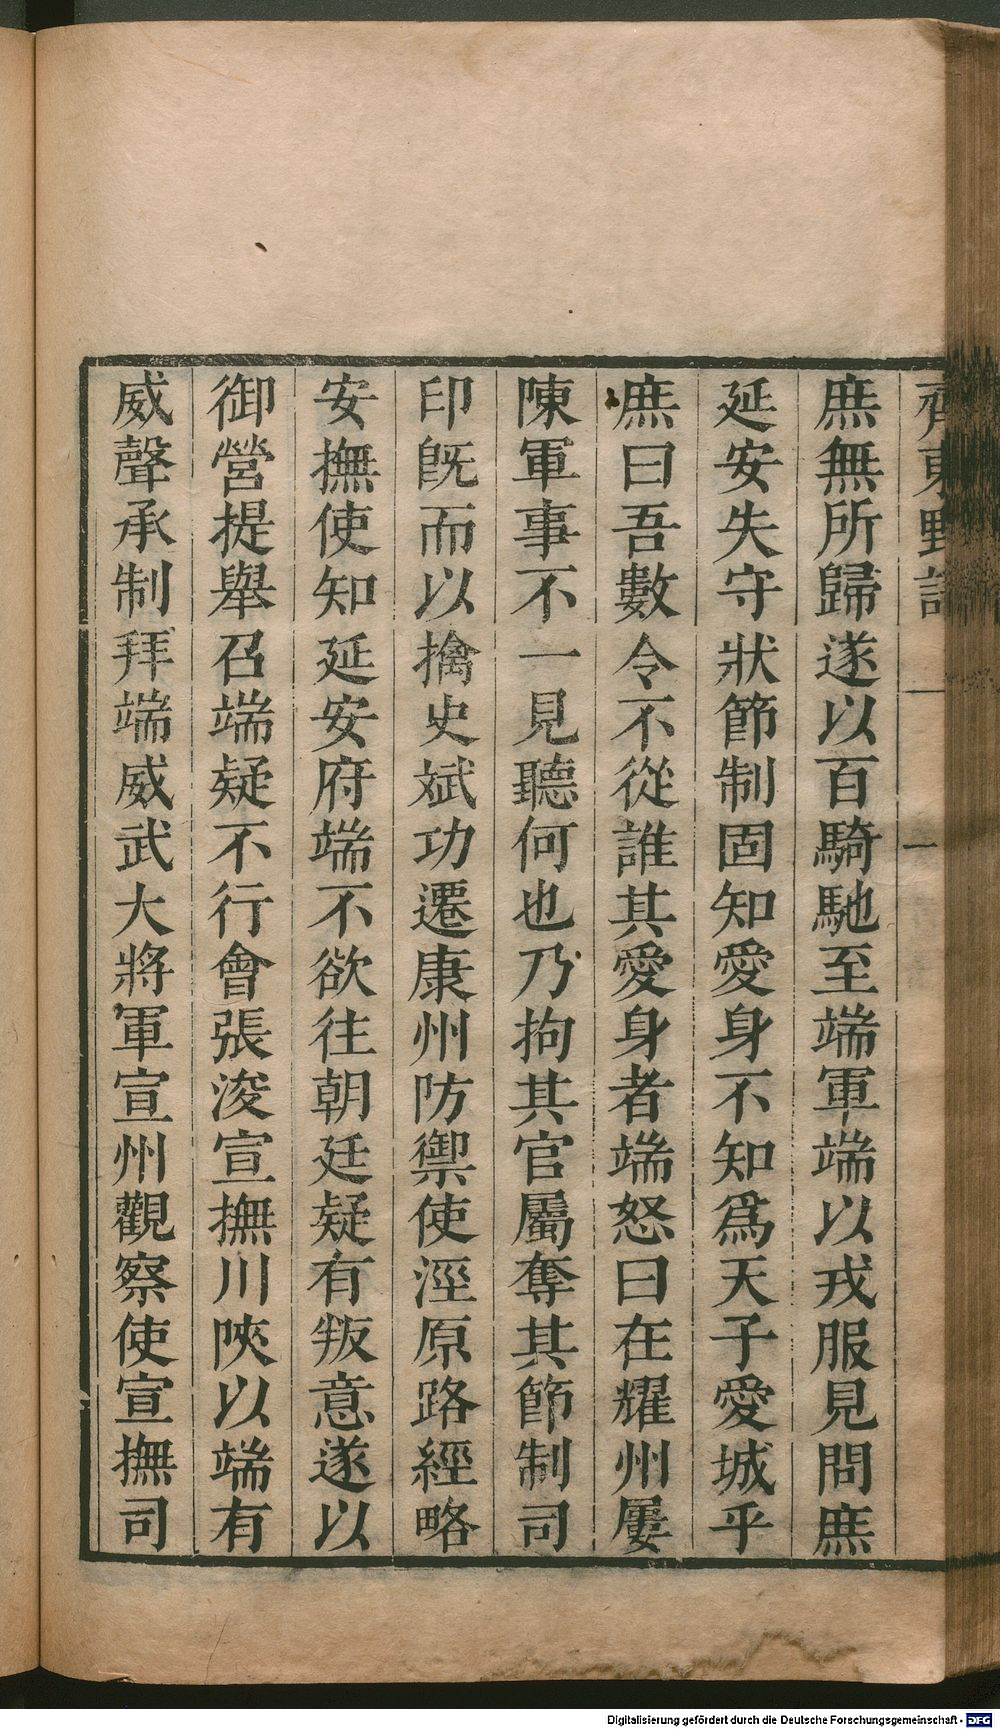 齊東野語 一
庶無所歸遂以百騎馳至端軍端以戎服見問庶
延安失守狀節制固知愛身不知爲天子愛城乎
庶曰吾數令不從誰其愛身者端怒曰在耀州屢
陳軍事不一見聽何也乃拘其官屬奪其節制司
印旣而以擒史斌功遷康州防禦使涇原路經略
安撫使知延安府端不欲往朝廷疑有叛意遂以
御營提舉召端疑不行會張浚宣撫川陝以端有
威聲承制拜端威武大將軍宣州觀察使宣撫司
Digitalisierung gefördert durch die Deutsche Forschungsgemeinschaft - DFG